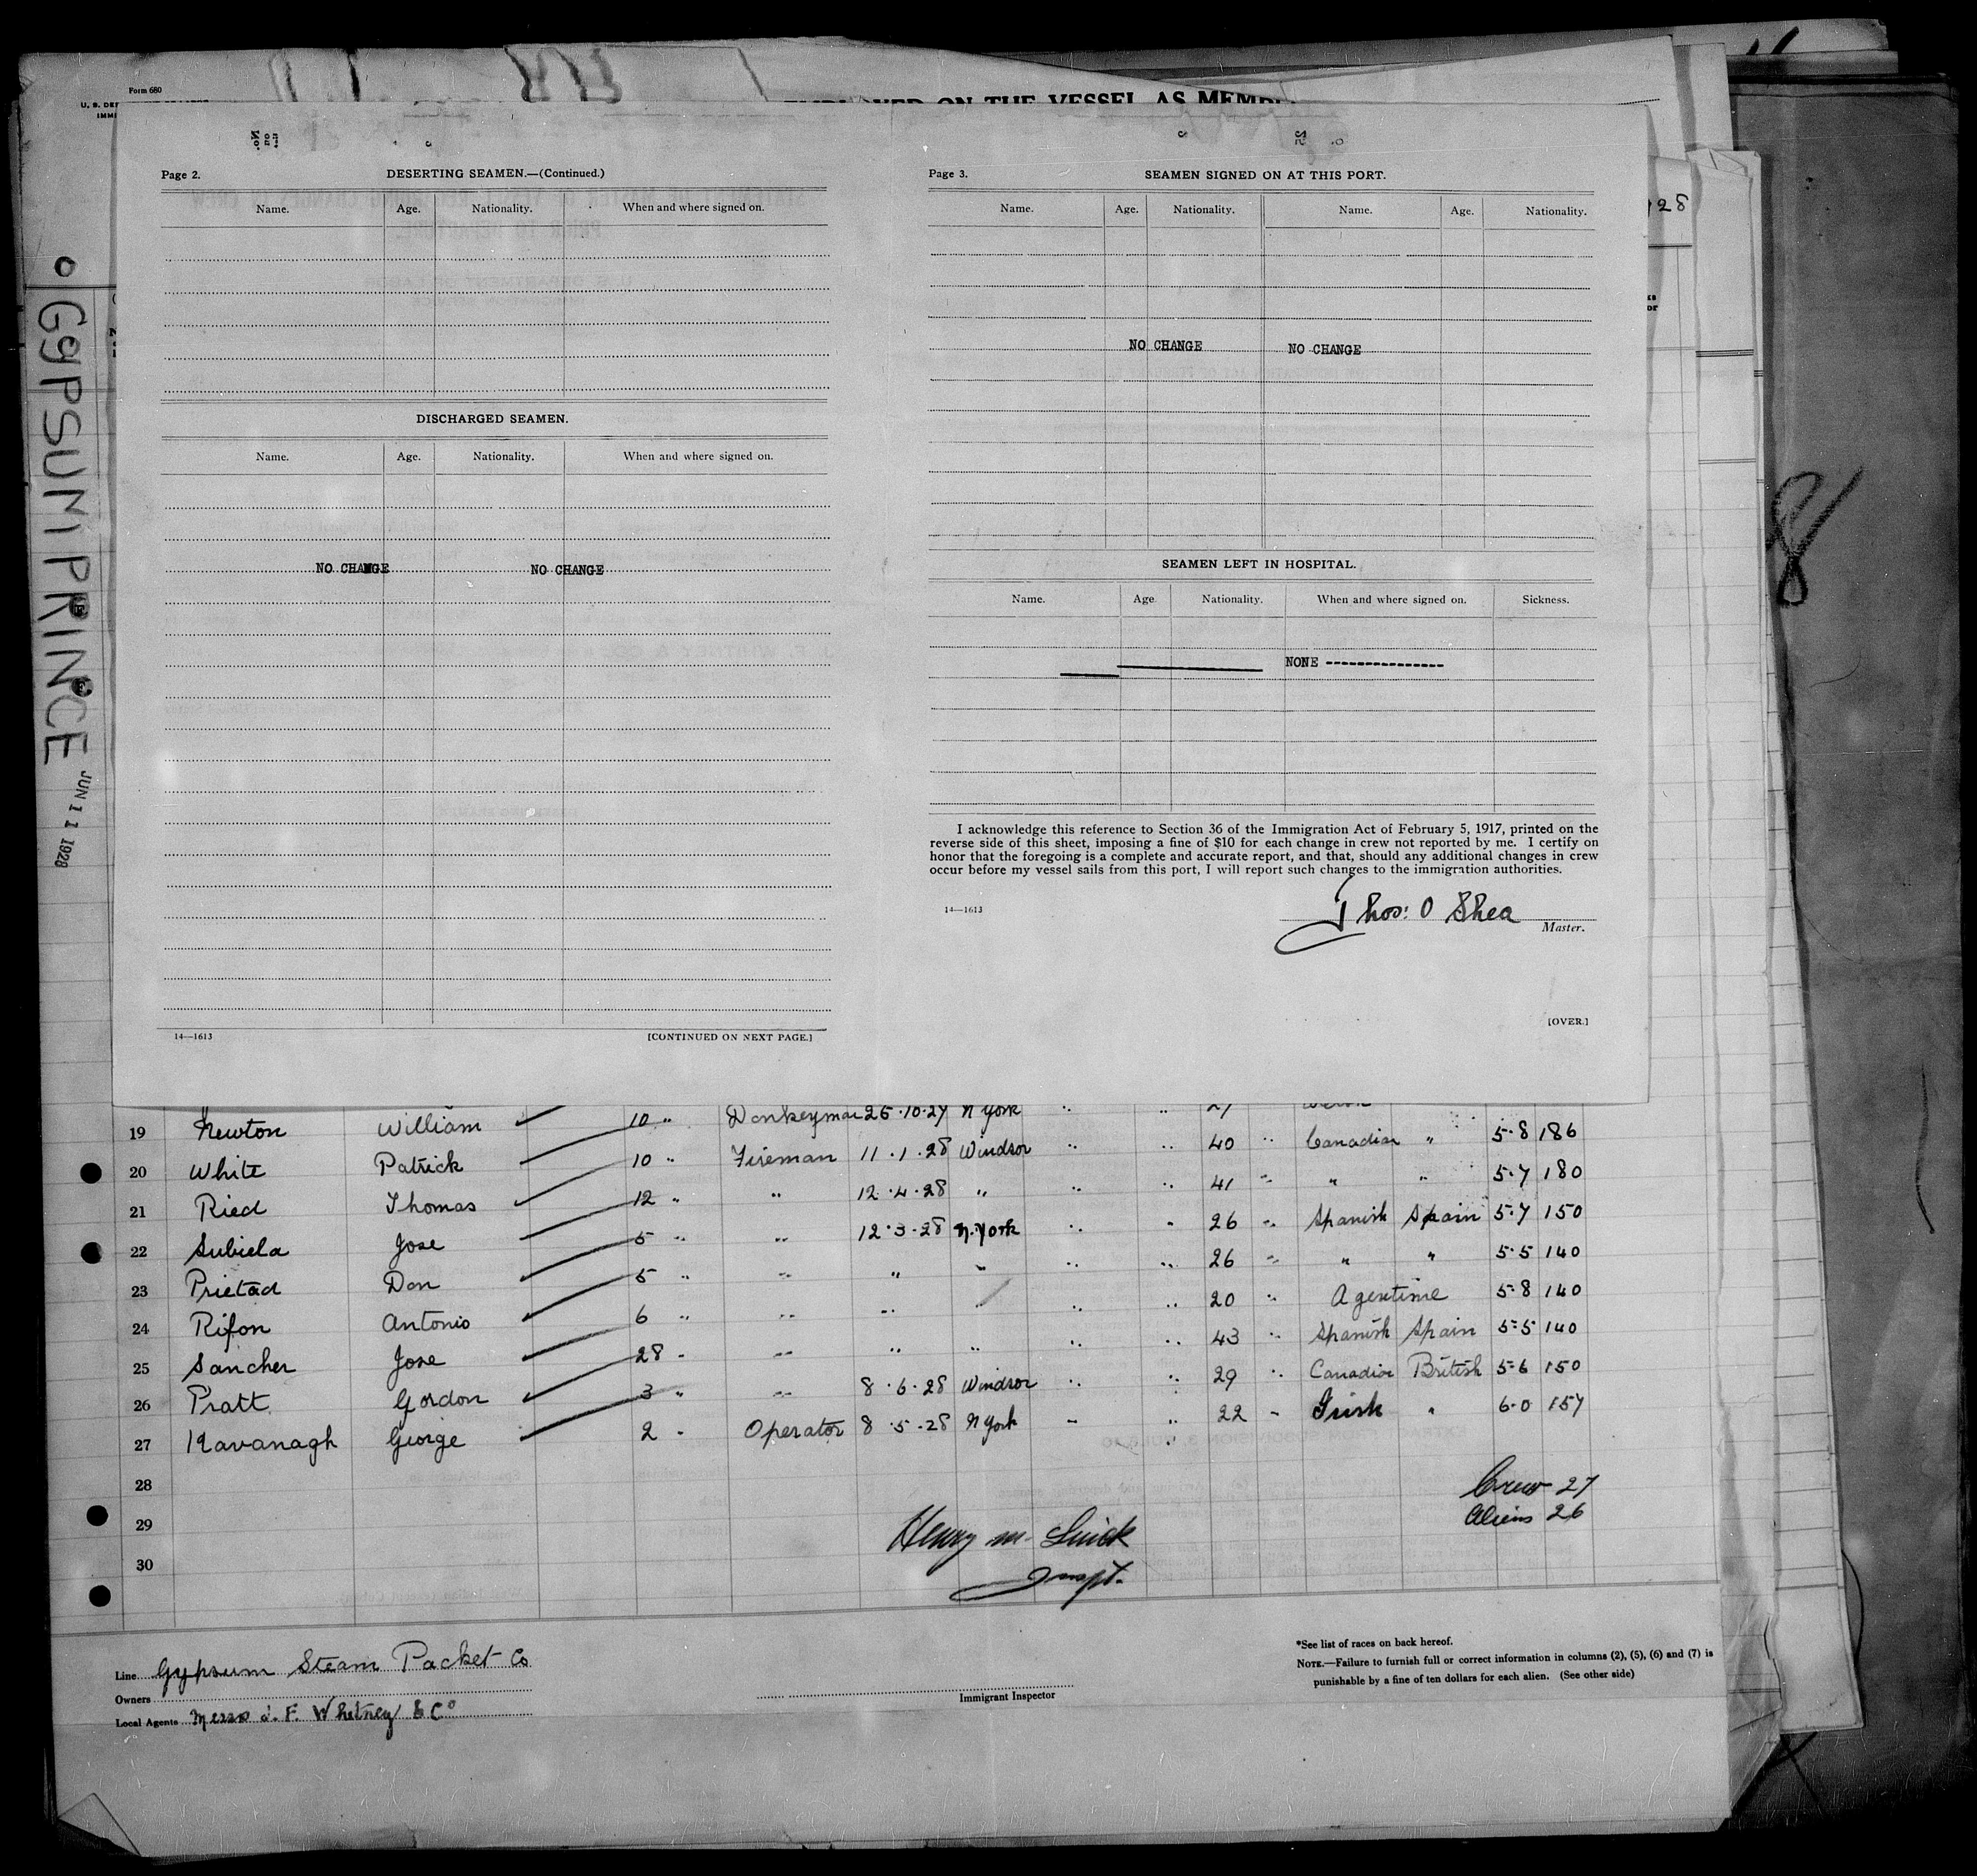 Form 680
U. S. DEP
IMMI
ON THE VESSEL AS MEMB
Page 2.
DESERTING SEAMEN.—(Continued.)
Name. Age. Nationality. When and where signed on.
DISCHARGED SEAMEN.
Name. Age. Nationality. When and where signed on.
NO CHANGE NO CHANGE
14—1613 [CONTINUED ON NEXT PAGE.]
Page 3.
SEAMEN SIGNED ON AT THIS PORT.
Name. Age. Nationality. Name. Age. Nationality.
NO CHANGE NO CHANGE
SEAMEN LEFT IN HOSPITAL.
Name. Age. Nationality. When and where signed on. Sickness.
NONE ----------------
I acknowledge this reference to Section 36 of the Immigration Act of February 5, 1917, printed on the
reverse side of this sheet, imposing a fine of $10 for each change in crew not reported by me. I certify on
honor that the foregoing is a complete and accurate report, and that, should any additional changes in crew
occur before my vessel sails from this port, I will report such changes to the immigration authorities.
14—1613
Thos: O Shea
Master.
[OVER.]
GYPSUM PRINCE
JUN 11 1928
28
19 Newton William 10 " Donkeyman 26.10.27 N York 27
20 White Patrick 10 " Fireman 11.1.28 Windsor " " 40 " Canadian " 5.8 186
21 Ried Thomas 12 " " 12.4.28 " " " 41 " " " 5.7 180
22 Subiela Jose 5 " " 12.3.28 N.York " " 26 " Spanish Spain 5.7 150
23 Prietad Don 5 " " " " " " 26 " " " 5.5 140
24 Rifon Antonio 6 " " " " " 20 " Agentine 5.8 140
25 Sancher Jose 28 " " " " " " 43 " Spanish Spain 5.5 140
26 Pratt Gordon 3 " " 8.6.28 Windsor " " 29 " Canadian British 5.6 150
27 Kavanagh George 2 " Operator 8.5.28 N York " " 22 " Irish " 6.0 157
28
29
30
Crew 27
Aliens 26
Henry m.
Inspt.
Line Gypsum Steam Packet Co
Owners
Local Agents Messrs J. F. Whitney & Co
Immigrant Inspector
*See list of races on back hereof.
NOTE.—Failure to furnish full or correct information in columns (2), (5), (6) and (7) is
punishable by a fine of ten dollars for each alien. (See other side)